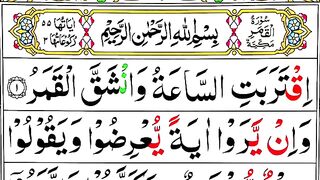 سُورَةُ الْقَمَرِ مَكِّيَّةٌ
بِسْمِ اللّٰهِ الرَّحْمٰنِ الرَّحِيْمِ
اٰيَاتُهَا ٥٥
رُكُوْعَاتُهَا ٣
اِقْتَرَبَتِ السَّاعَةُ وَانْشَقَّ الْقَمَرُ ١
وَاِنْ يَّرَوْا اٰيَةً يُّعْرِضُوْا وَيَقُوْلُوْا